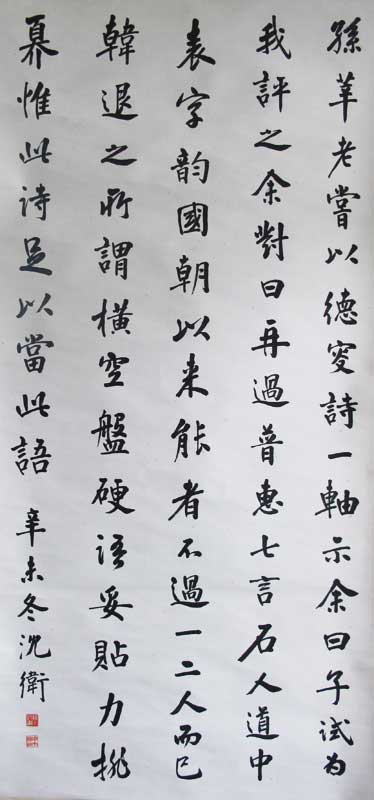 孫莘老嘗以德叜詩一軸示余曰子試为
我評之余對曰再過普惠七言石人道中
表字韵國朝以来能者不過一二人而已
韓退之所謂橫空盤硬語妥貼力排
奡惟此詩足以當此語 辛未冬沈衛